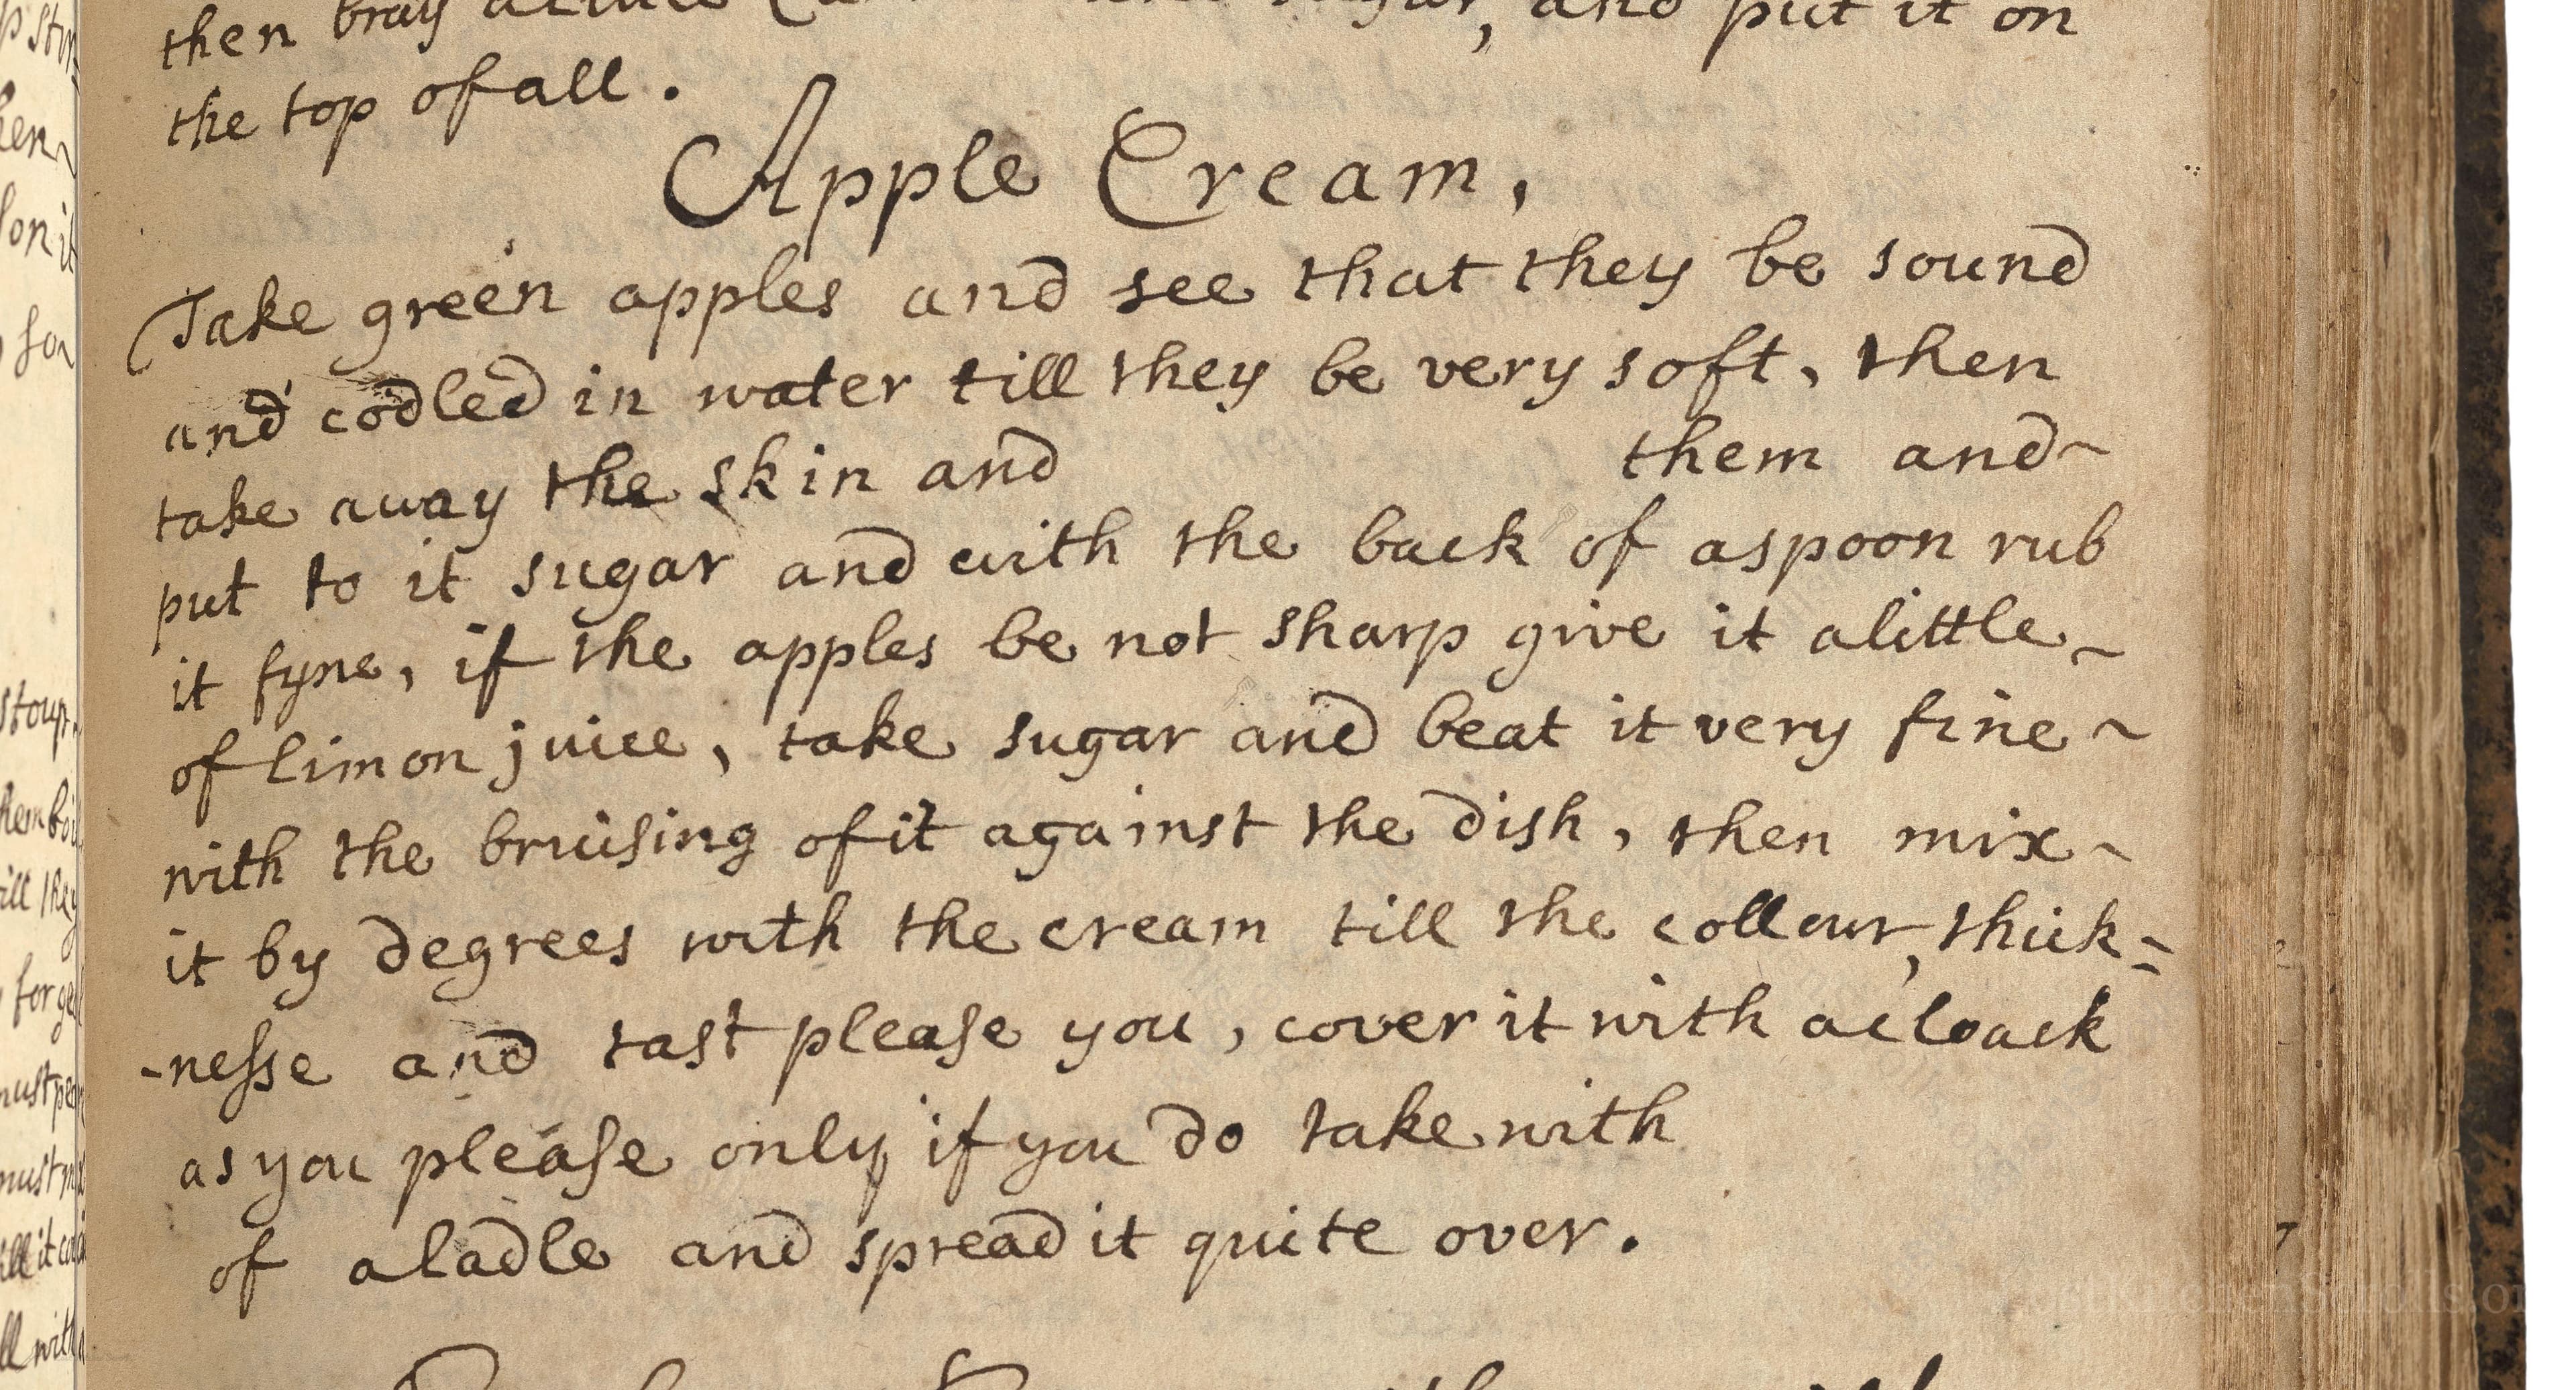 then bray and put it on
the top of all .
Apple Cream,
Take green apples and see that they be sound
and codled in water till they be very soft, then
take away the skin and them and~
put to it sugar and with the back of aspoon rub
it fyne, if the apples be not sharp give it alittle~
of limon juice, take sugar and beat it very fine~
with the bruising of it against the dish, then mix~
it by degrees with the cream till the collour, thick=
-nesse and tast please you, cover it with acloack
as you please only if you do take with
of aladle and spread it quite over.